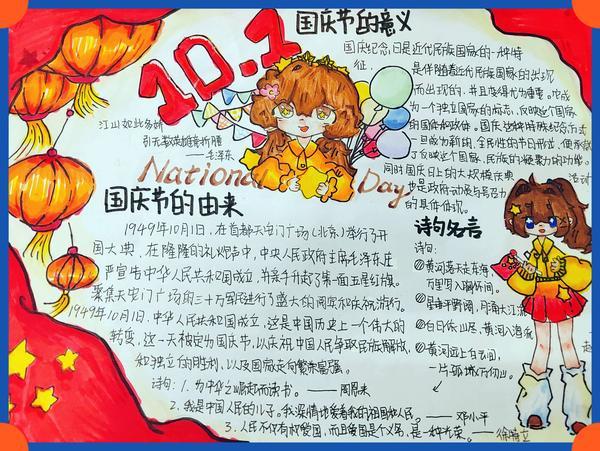 10.1
国庆节的意义
国庆纪念日是近代民族国家的一种特
征,是伴随着近代民族国家的出现
而出现的,并且变得尤为重要。它成
为一个独立国家的标志,反映这个国家
的国体和政体。国庆这种特殊纪念方式
一旦成为新的、全民性的节日形式,便承载
了反映这个国家、民族的凝聚力的功能。
同时国庆日上的大规模庆典活动
也是政府动员与号召力
的具体体现。
江山如此多娇
引无数英雄竞折腰
——毛泽东
National Day
国庆节的由来
1949年10月1日,在首都天安门广场(北京)举行了开
国大典,在隆隆的礼炮声中,中央人民政府主席毛泽东庄
严宣告中华人民共和国成立,并亲手升起了第一面五星红旗。
聚集天安门广场的三十万军民进行了盛大的阅兵和庆祝游行。
1949年10月1日,中华人民共和国成立,这是中国历史上一个伟大的
转变,这一天被定为国庆节,以庆祝中国人民争取民族解放
和独立的胜利,以及国家走向繁荣富强。
诗句:1.为中华之崛起而读书。——周恩来
2.我是中国人民的儿子。我深情地爱着我的祖国和人民。——邓小平
3.人民不仅有权爱国,而且爱国是个义务,是一种光荣。——徐特立
诗句名言
诗句:
黄河落天走东海
万里写入胸怀间。
星垂平野阔,月涌大江流
白日依山尽,黄河入海流
黄河远上白云间,
一片孤城万仞山。